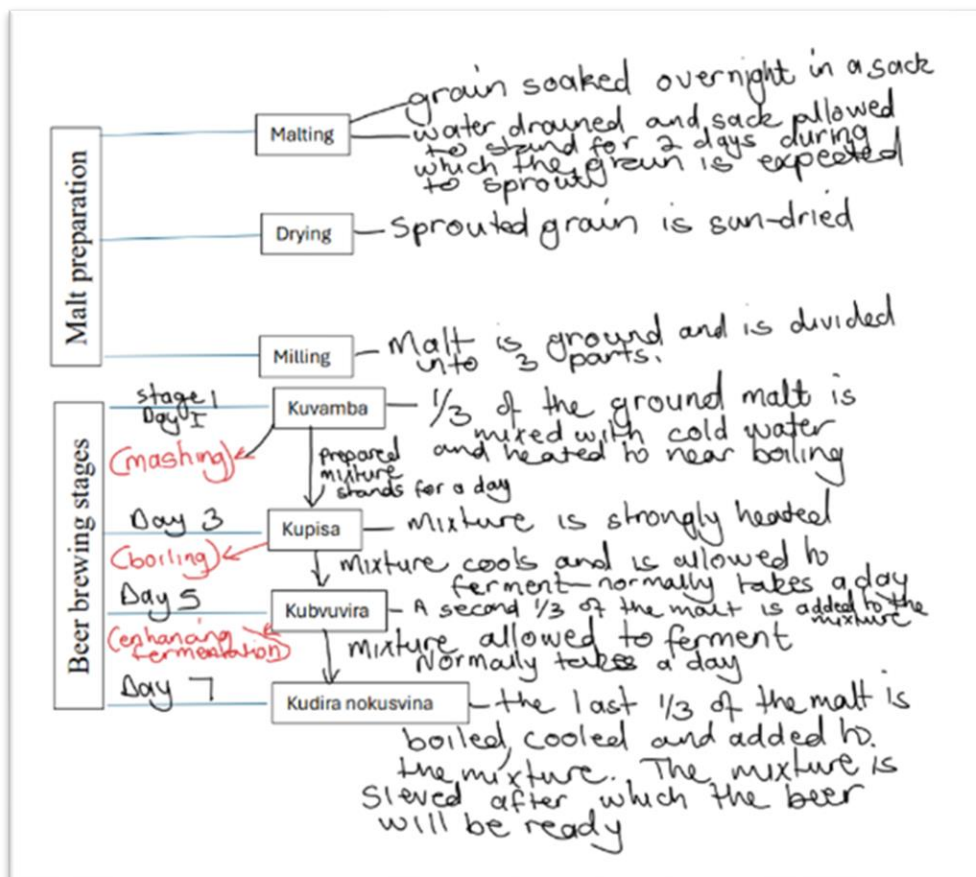 Malt preparation
Malting
grain soaked overnight in a sack
water drained and sack allowed
to stand for 2 days during
which the grain is expected
to sprout
Drying
Sprouted grain is sun-dried
Milling
Malt is ground and is divided
into 3 parts.
Beer brewing stages
Stage 1
Day 1
(mashing)
Kuvamba
1/3 of the ground malt is
mixed with cold water
and heated to near boiling
Prepared
mixture
stands for a day
Day 3
(boiling)
Kupisa
Mixture is strongly heated
Mixture cools and is allowed to
ferment - normally takes a day
Day 5
(enhancing
fermentation)
Kubvuvira
A second 1/3 of the malt is added to the
mixture
mixture allowed to ferment
Normally takes a day
Day 7
Kudira nokusvina
the last 1/3 of the malt is
boiled, cooled and added to.
the mixture. The mixture is
Sieved after which the beer
will be ready